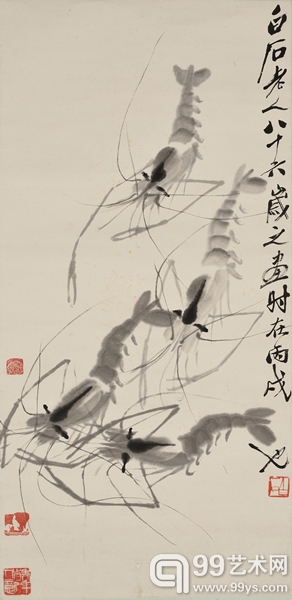 白石老人八十六歲之畫时在丙戌
也
99艺术网
www.99ys.com